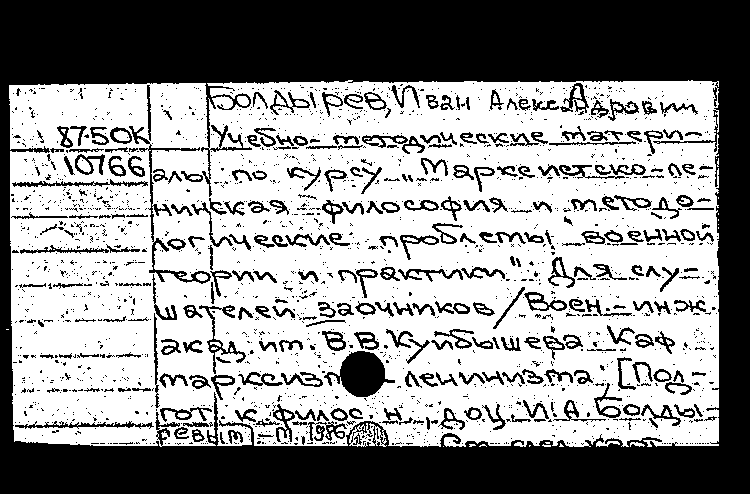 Болдырев, Иван Александрович
87-5OK Учебно-методические матери-
10766 алы по курсу „Марксистско-ле-
нинская философия и методо-
логические проблемы военной
теории и практики": Для слу-
шателей заочников / Воен.-инж.
акад. им. В.В.Куйбышева. Каф.
марксизма-ленинизма; [Под-
гот. к.филос.н., доц. И.А.Болды-
ревым] - М., 1986
См. след. карт.